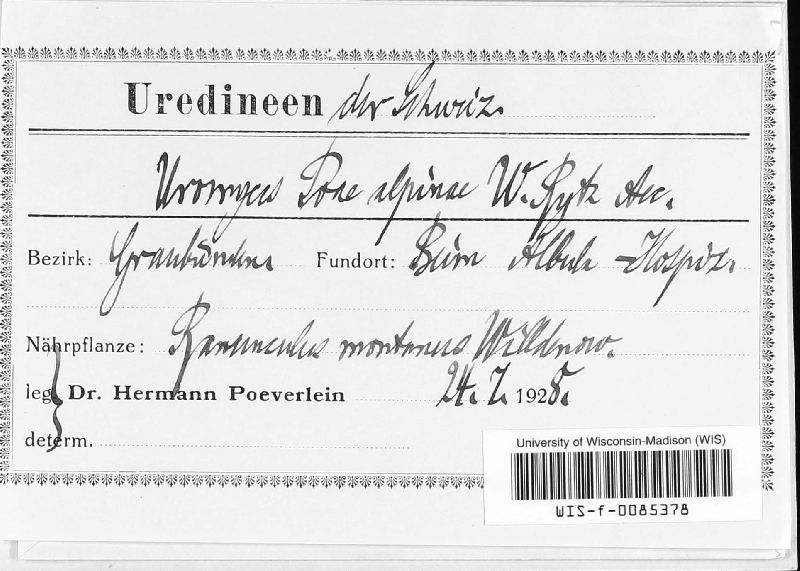 Uredineen der Schweiz.
Uromyces Poae alpinae W. Rytz Aec.
Bezirk: Graubünden. Fundort: Beim Albula-Hospiz.
Nährpflanze: Ranunculus montanus Willdenow.
leg. Dr. Hermann Poeverlein 24. 7. 1928.
determ.
University of Wisconsin-Madison (WIS)
WIS-f-0085378